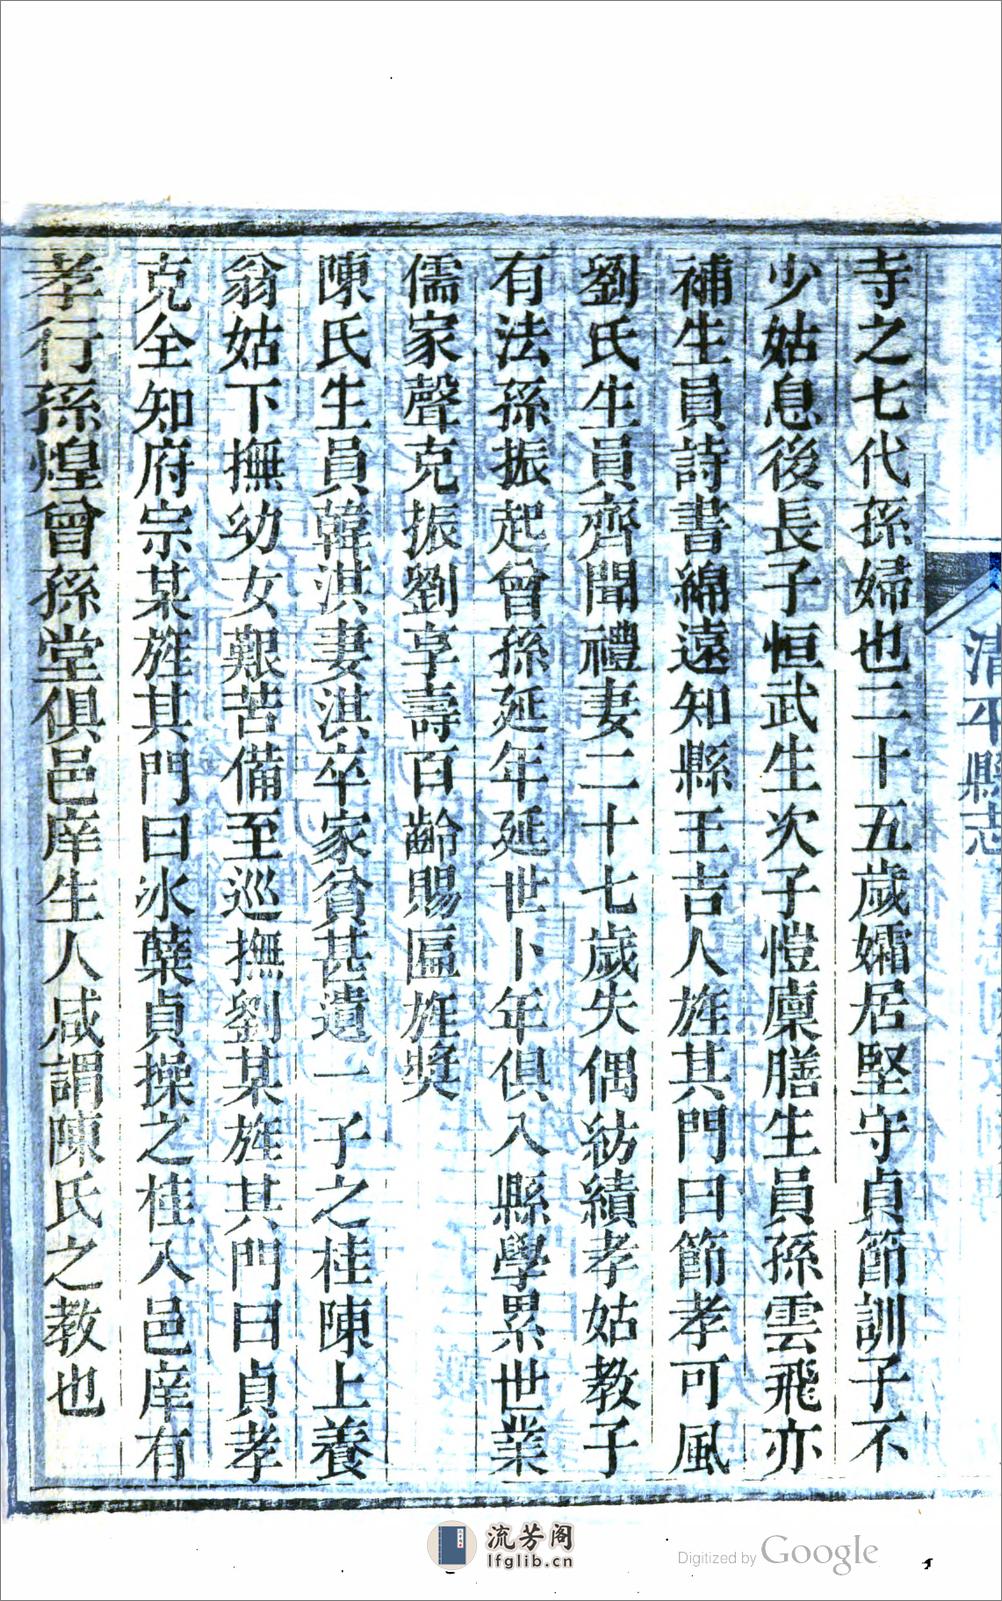 清平縣志
寺之七代孫婦也二十五歲孀居堅守貞節訓子不
少姑息後長子恒武生次子愷廩膳生員孫雲飛亦
補生員詩書綿遠知縣王吉人旌其門曰節孝可風
劉氏生員齊聞禮妻二十七歲失偶紡績孝姑教子
有法孫振起曾孫延年延世卜年俱入縣學累世業
儒家聲克振劉享壽百齡賜匾旌獎
陳氏生員韓淇妻淇卒家貧甚遺一子之桂陳上養
翁姑下撫幼女艱苦備至巡撫劉某旌其門曰貞孝
克全知府宗某旌其門曰冰蘖貞操之桂入邑庠有
孝行孫煌曾孫堂俱邑庠生人咸謂陳氏之教也
流芳阁
lfglib.cn
Digitized by Google